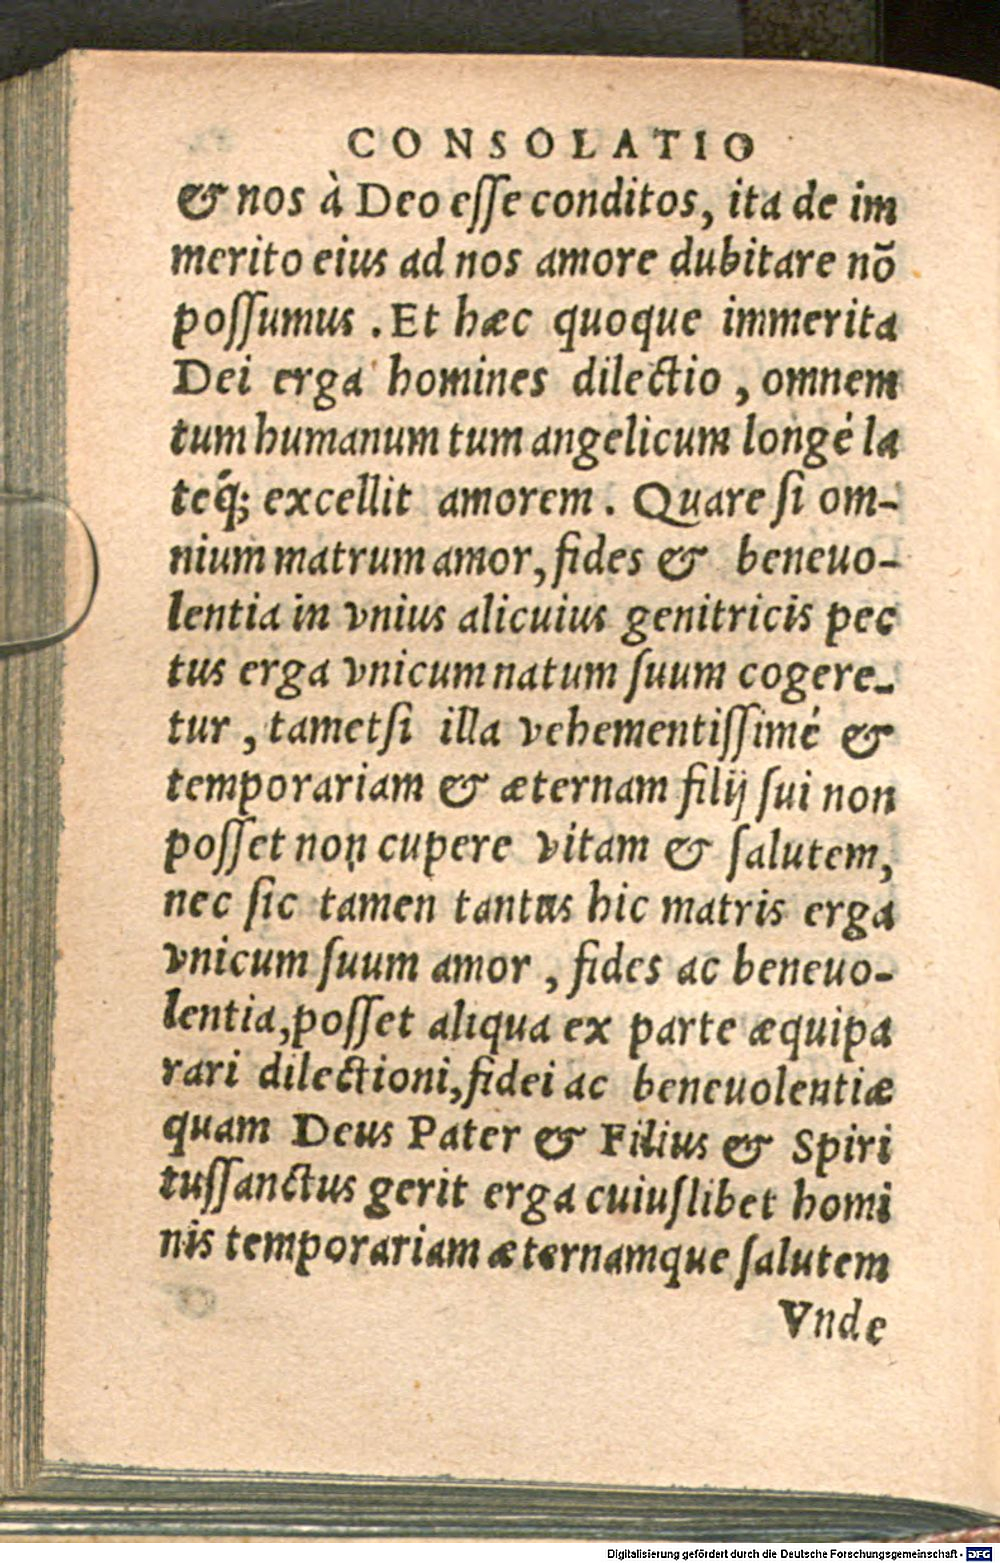 CONSOLATIO
& nos à Deo eſſe conditos, ita de im
merito eius ad nos amore dubitare nõ
poſſumus . Et hæc quoque immerita
Dei erga homines dilectio , omnem
tum humanum tum angelicum longé la
teq́; excellit amorem . Quare ſi om-
nium matrum amor, fides & beneuo-
lentia in vnius alicuius genitricis pec
tus erga vnicum natum ſuum cogere-
tur , tametſi illa vehementiſſimé &
temporariam & æternam filij ſui non
poſſet non cupere vitam & ſalutem,
nec ſic tamen tantus hic matris erga
vnicum ſuum amor , fides ac beneuo-
lentia, poſſet aliqua ex parte æquipa
rari dilectioni, fidei ac beneuolentiæ
quam Deus Pater & Filius & Spiri
tuſſanctus gerit erga cuiuſlibet homi
nis temporariam æternamque ſalutem
Vnde
Digitalisierung gefördert durch die Deutsche Forschungsgemeinschaft - DFG